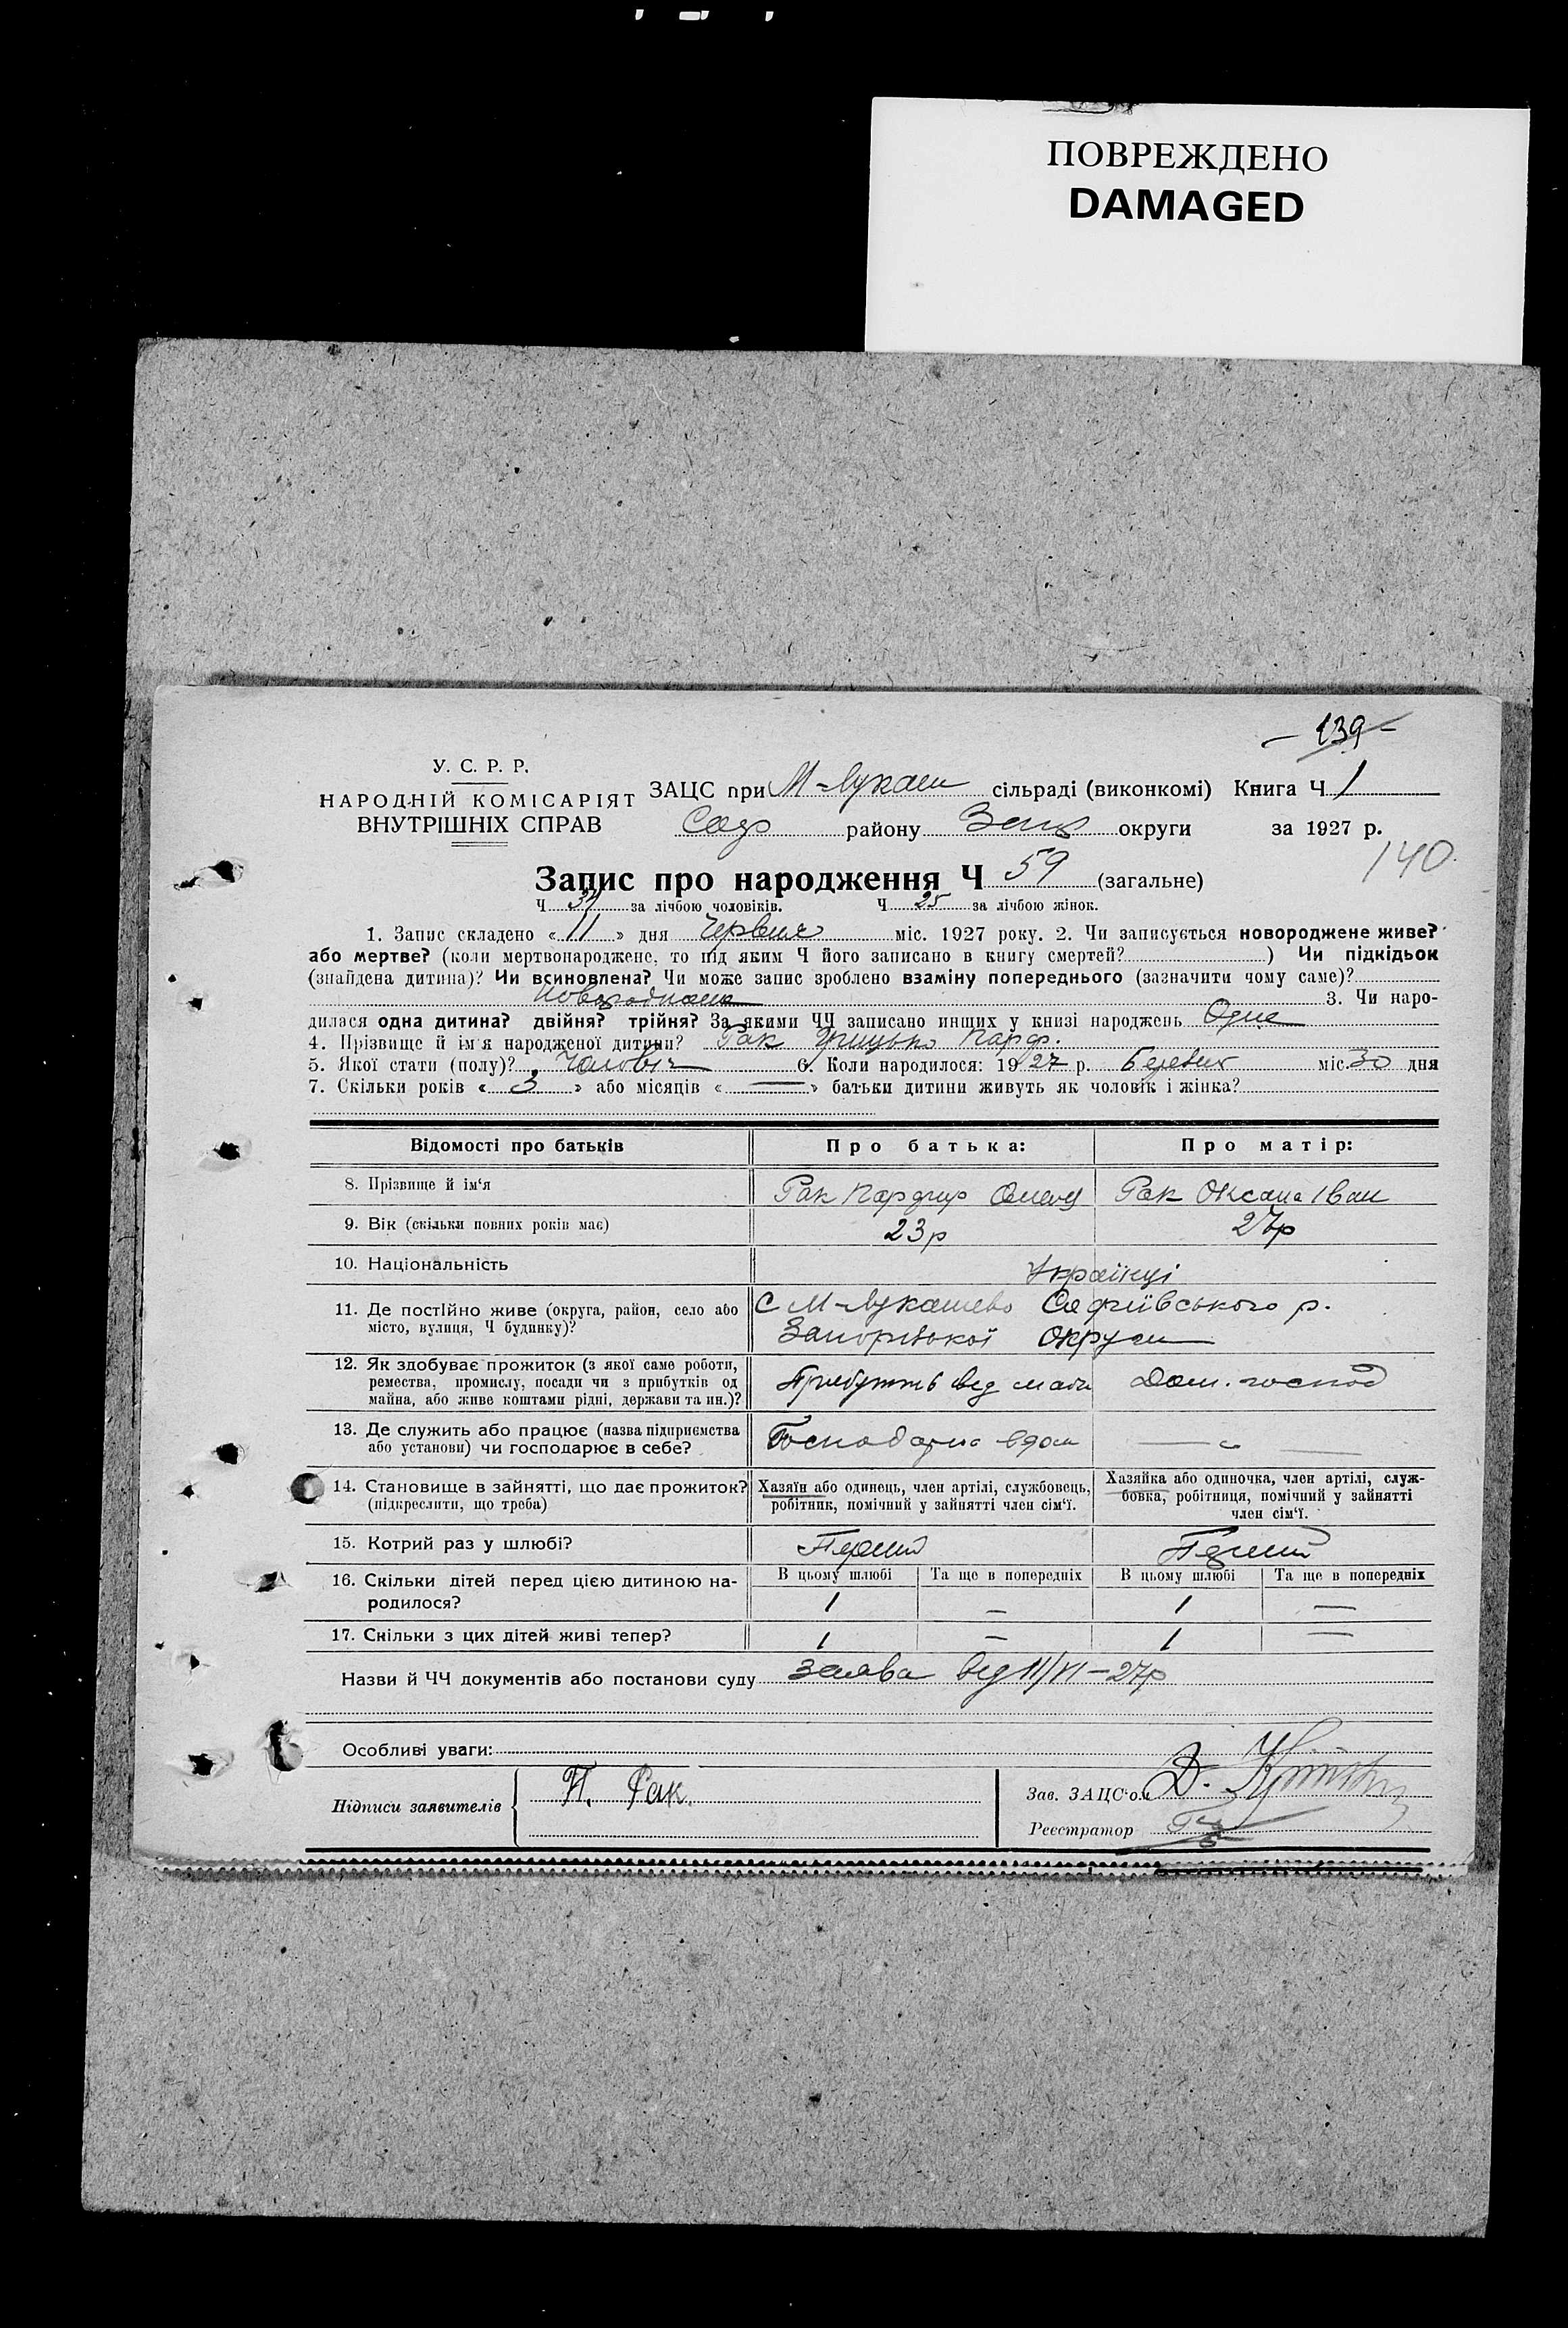 ПОВРЕЖДЕНО
DAMAGED
- 139 -
У. С. Р. Р.
НАРОДНІЙ КОМІСАРІЯТ
ВНУТРІШНІХ СПРАВ
ЗАЦС при М-Лукаш сільраді (виконкомі) Книга Ч 1
Соф району Запор округи за 1927 р.
140
Запис про народження Ч 59 (загальне)
Ч 34 за лічбою чоловіків. Ч 25 за лічбою жінок.
1. Запис складено «11» дня Червня міс. 1927 року. 2. Чи записується новороджене живе?
або мертве? (коли мертвонароджене, то під яким Ч його записано в книгу смертей?) Чи підкідьок
(знайдена дитина)? Чи всиновлена? Чи може запис зроблено взаміну попереднього (зазначити чому саме)?
3. Чи наро-
дилася одна дитина? двійня? трійня? За якими ЧЧ записано инших у книзі народжень Одне
4. Прізвище й ім'я народженої дитини? Рак Грицько Парф.
5. Якої стати (полу)? Чоловіч 6. Коли народилося: 1927 р. Березня міс. 30 дня
7. Скільки років «3» або місяців «—» батьки дитини живуть як чоловік і жінка?
Відомості про батьків Про батька: Про матір:
8. Прізвище й ім'я Рак Парфир Рак Оксана Іван
9. Вік (скільки повних років має) 23р 27р
10. Національність Українці
11. Де постійно живе (округа, район, село або місто, вулиця, Ч будинку)? С М-Лукашево Софіївського р.
Запорізької Округи
12. Як здобуває прожиток (з якої саме роботи, ремества, промислу, посади чи з прибутків од майна, або живе коштами рідні, держави та ин.)? від Дом. господ
13. Де служить або працює (назва підприємства або установи) чи господарює в себе? Господарює вдома — „ —
14. Становище в зайнятті, що дає прожиток? (підкреслити, що треба) Хазяїн або одинець, член артілі, службовець, робітник, помічний у зайнятті член сім'ї. Хазяйка або одиночка, член артілі, служ-бовка, робітниця, помічний у зайнятті член сім'ї.
15. Котрий раз у шлюбі? Перший Перший
16. Скільки дітей перед цією дитиною на- В цьому шлюбі Та ще в попередніх В цьому шлюбі Та ще в попередніх
родилося? 1 — 1 —
17. Скільки з цих дітей живі тепер? 1 — 1 —
Назви й ЧЧ документів або постанови суду заява від 11/VI-27р
Особливі уваги:
Підписи заявителів П. Рак.
Зав. ЗАЦС'ом Д.
Реєстратор